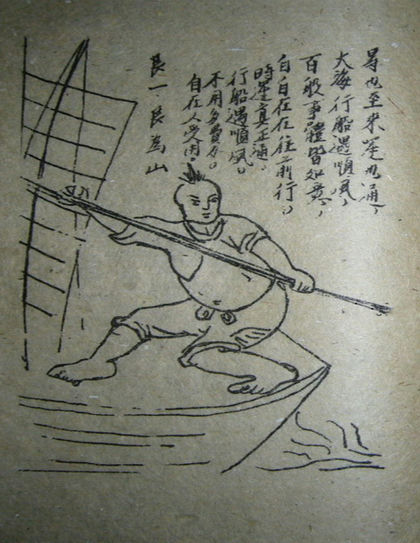 也至来運也通，
大海行船遇順風，
百般事體皆如意，
自自在在往前行。
時運真正通。
行船遇順風。
不用多費力。
自在人
艮一艮為山